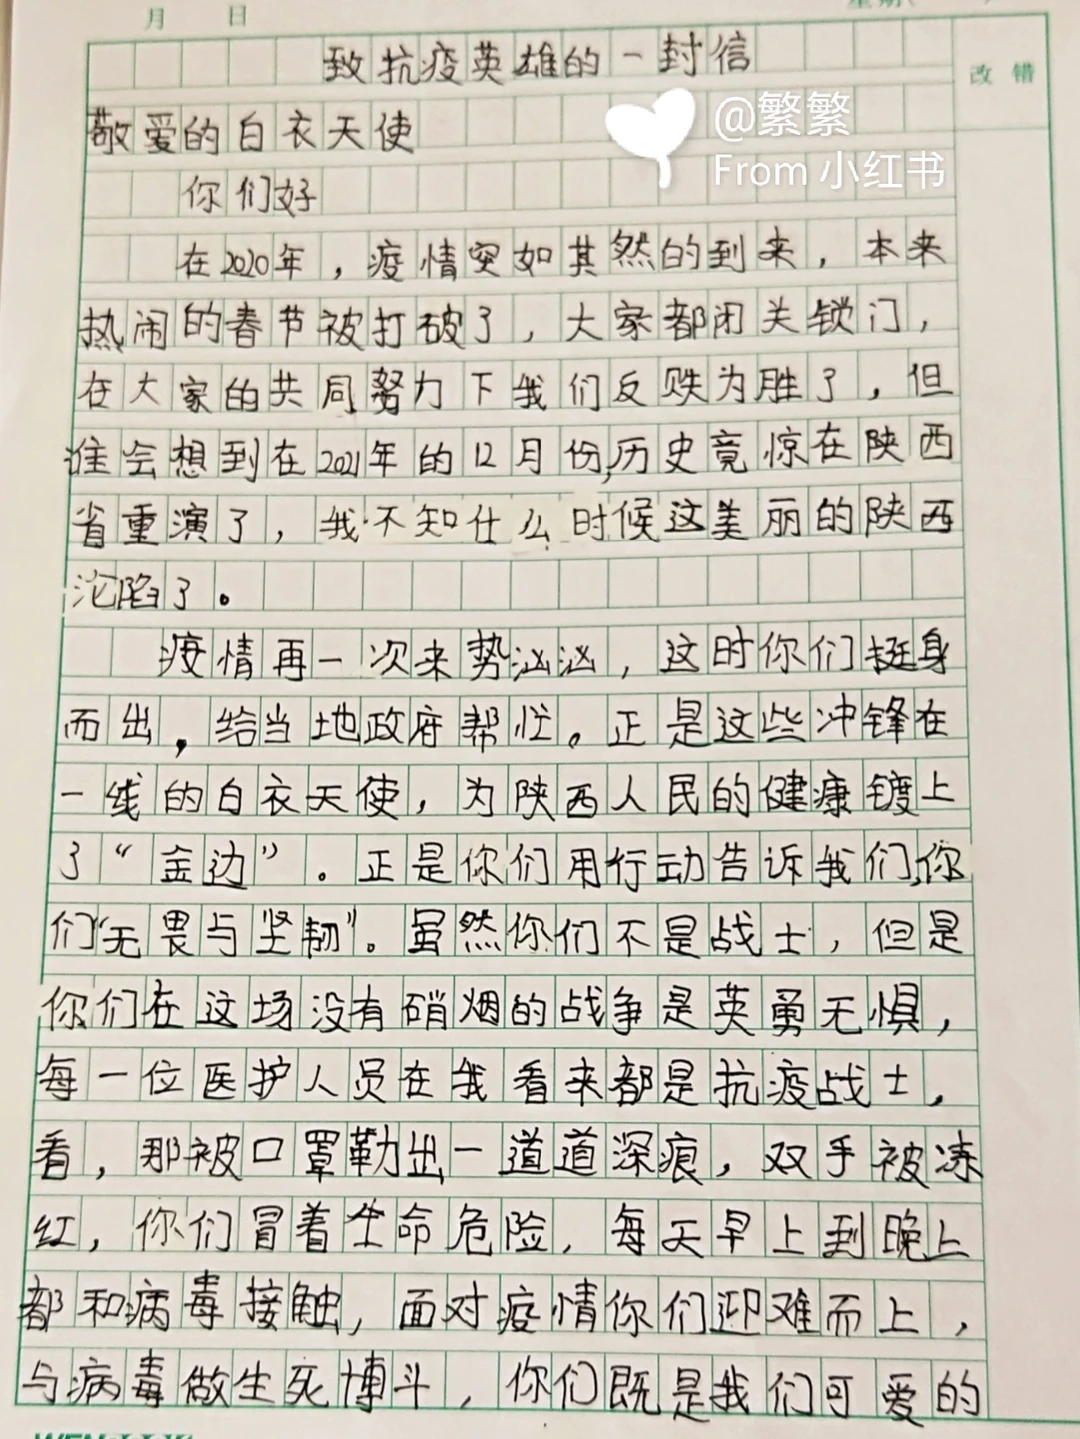 月 日
致抗疫英雄的一封信
改错
@繁繁
From 小红书
敬爱的白衣天使
你们好
在2020年，疫情突如其然的到来，本来
热闹的春节被打破了，大家都闭关锁门，
在大家的共同努力下我们反败为胜了，但
谁会想到在2021年的12月份,历史竟惊在陕西
省重演了，我不知什么时候这美丽的陕西
沦陷了。
疫情再一次来势汹汹，这时你们挺身
而出，给当地政府帮忙。正是这些冲锋在
一线的白衣天使，为陕西人民的健康镀上
了“金边”。正是你们用行动告诉我们,你
们“无畏与坚韧”。虽然你们不是战士，但是
你们在这场没有硝烟的战争是英勇无惧，
每一位医护人员在我看来都是抗疫战士，
看，那被口罩勒出一道道深痕，双手被冻
红，你们冒着生命危险，每天早上到晚上
都和病毒接触，面对疫情你们迎难而上，
与病毒做生死博斗，你们既是我们可爱的